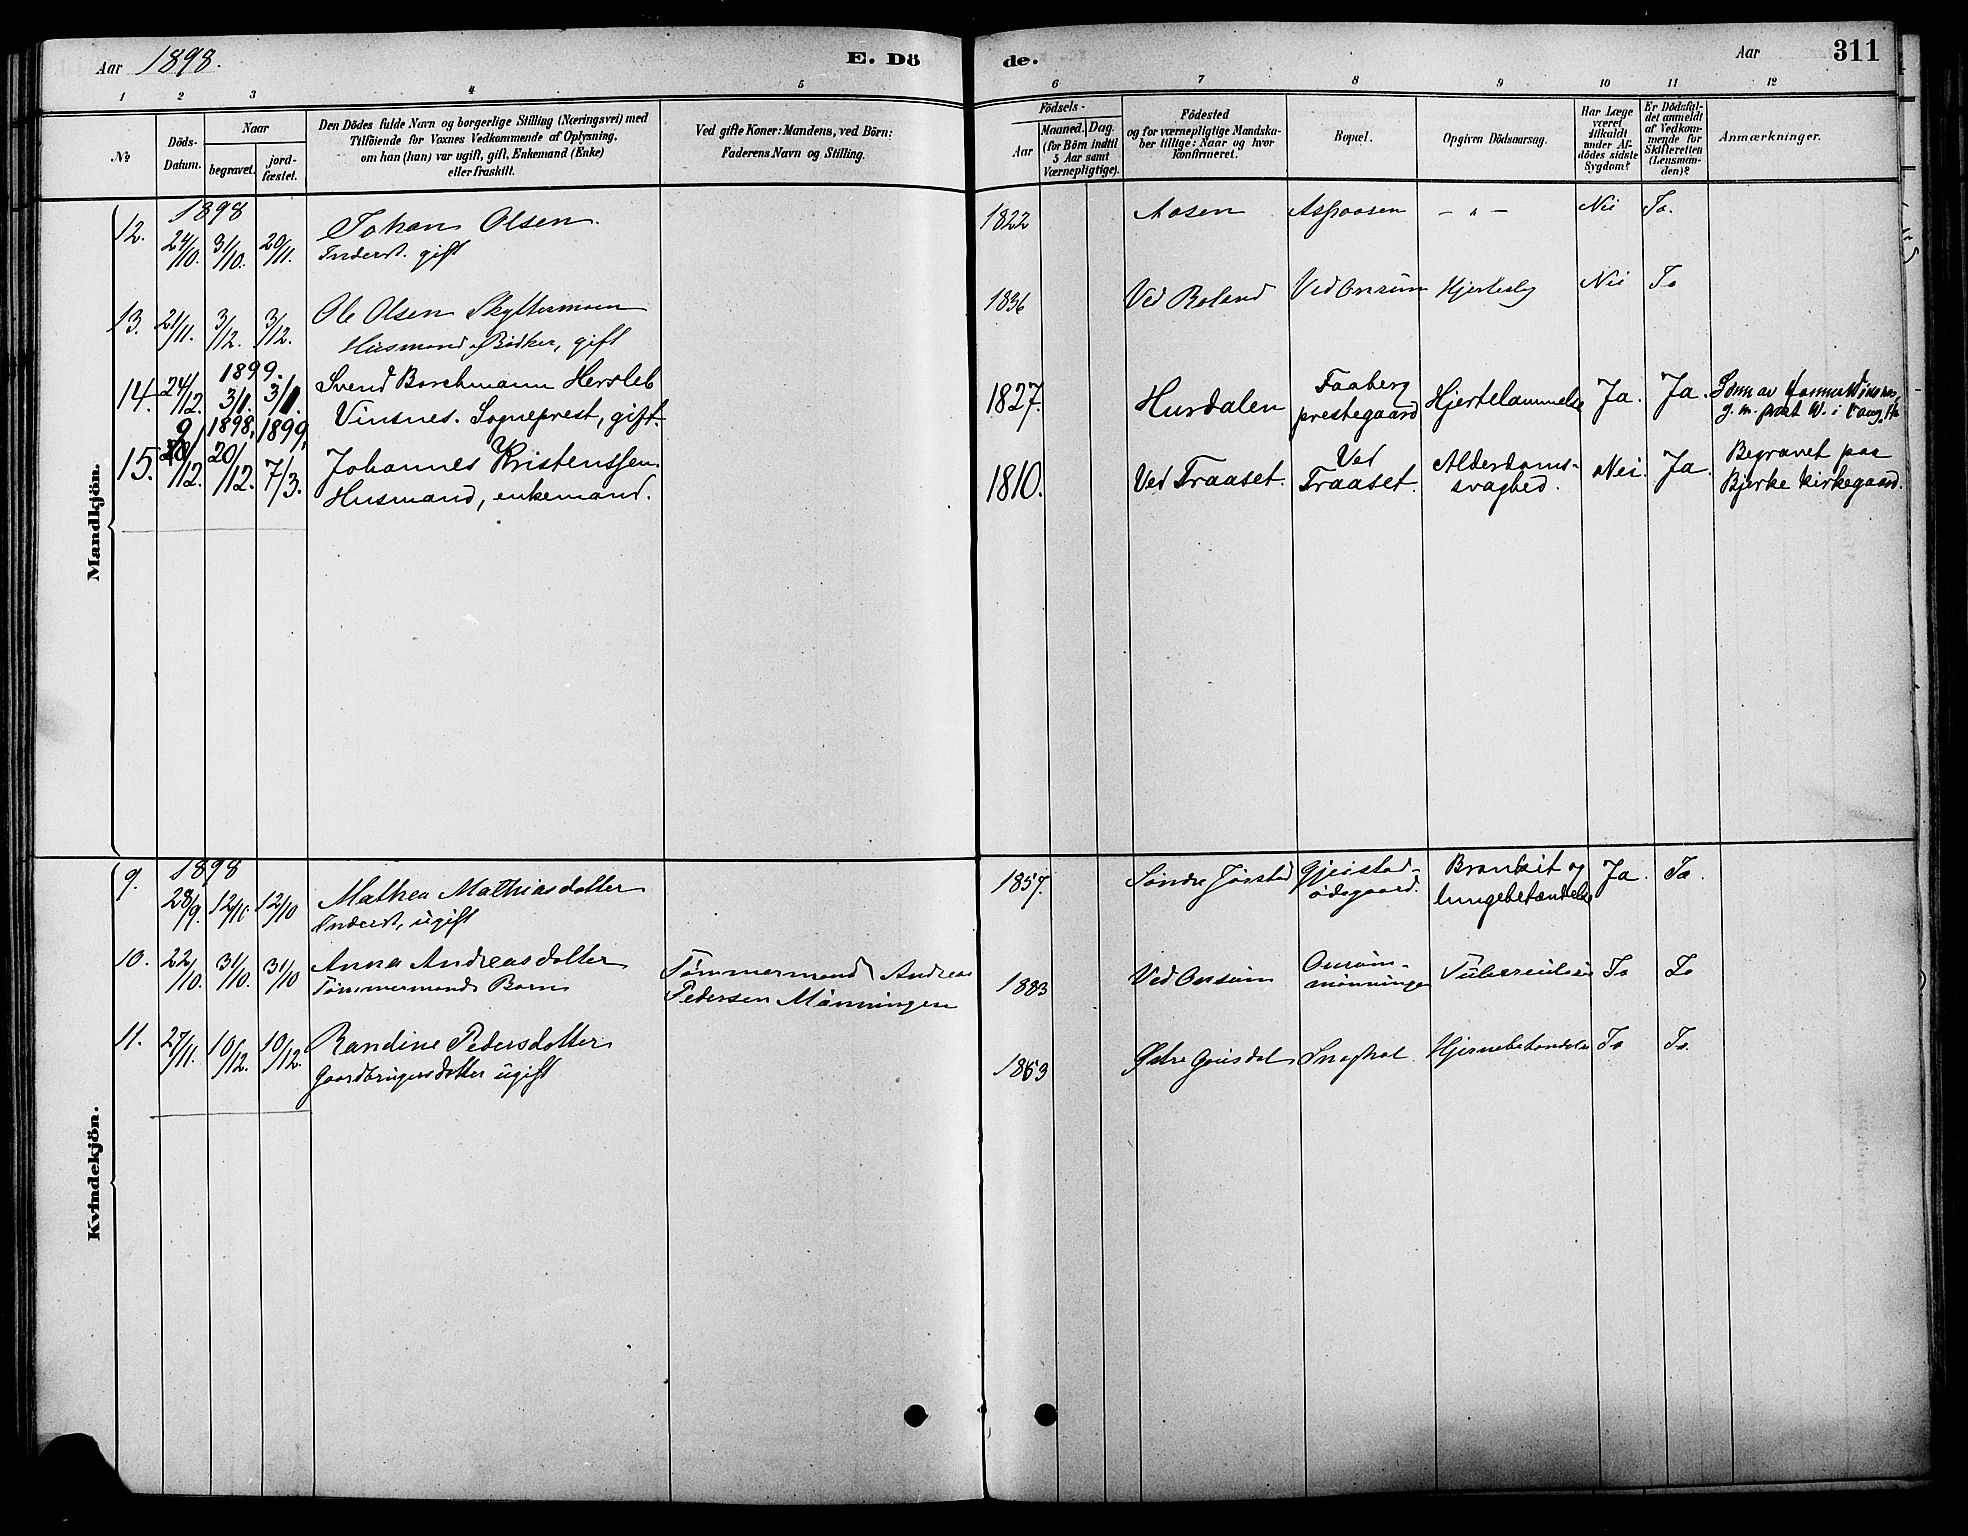 Aar 1898.
E. Dö
de.
Aar
311
1 2 3 4 5 6 7 8 9 10 11 12
No
Döds-
Datum.
Naar
begravet.
jord-
fæstet.
Den Dödes fulde Navn og borgerlige Stilling (Næringsvei) med
Tilföiende for Voxnes Vedkommende af Oplysning,
om han (hun) var ugift, gift, Enkemand (Enke)
eller fraskilt.
Ved gifte Koner: Mandens, ved Börn:
Faderens Navn og Stilling.
Födsels-
Aar
Maaned. Dag.
(for Börn indtil
5 Aar samt
Værnepligtige).
Födested
og for værnepligtige Mandska-
ber tillige: Naar og hvor
Konfirmeret.
Bopæl.
Opgiven Dödsaarsag.
Har Læge
været
tilkaldt
under Af-
dödes sidste
Sygdom?
Er Dödsfal-
det anmeldt
af Vedkom-
mende for
Skifteretten
(Lensman-
den)?
Anmærkninger.
Mandkjön.
1898
12. 24/10. 31/10. 20/11. Johan Olsen. 1822 Aasen Aspaasen - " - Nei Ja.
Inderst. gift
13. 21/11. 3/12. 3/12. Ole Olsen Skyttermoen 1836 Ved Roland Ved Onsum Hjerteslag Nei Ja
Husmand og Bödker, gift
1899.
14. 24/12. 3/1. 3/1. Svend Borchmann Hersleb
Vinsnes. Sogneprest, gift. 1827. Hurdalen Faaberg
prestegaard Hjertelammelse Ja. Ja. Sönn av
1898, 1899,
15. 9/12. 20/12. 7/3. Johannes Kristenssen.
Husmand, enkemand. 1810. Ved Traaset. Ved
Traaset. Alderdoms-
svaghed. Nei. Ja. Begravet paa
Bjerke kirkegaard.
Kvindekjön.
1898
9. 28/9. 12/10 12/10 Mathea Mathiasdotter 1857. Söndre Jörstad Gjeistad-
ödegaard. Bronkit og
lungebetændelse Ja. Ja.
Inderst, ugift
10. 22/10. 31/10. 31/10 Anna Andreasdotter
Tømmermands Barn Tømmermand Andreas
Pedersen Mönningen 1883 Ved Onsum Onsum-
mönningen Tuberculose Ja Ja
11. 27/11. 10/12. 10/12. Randine Pedersdotter 1863 Østre Gausdal Hjernebetændelse Ja Ja.
Gaardbrugersdotter ugift